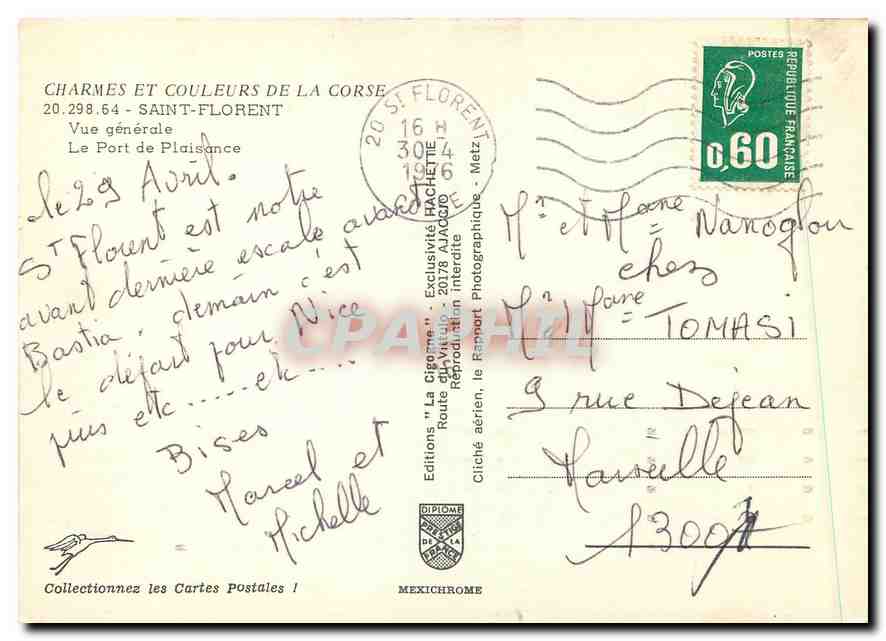 CHARMES ET COULEURS DE LA CORSE
20.298.64 - SAINT-FLORENT
Vue générale
Le Port de Plaisance
le 29 Avril.
St Florent est notre
avant dernière escale avant
Bastia, demain c'est
le départ pour Nice
puis etc.....etc.....
Bises
Marcel et
Michelle
Collectionnez les Cartes Postales !
20 St FLORENT
16 H
30-4
1976
CORSE
Editions "La Cigogne" - Exclusivité HACHETTE
Route du Vittulo - 20178 AJACCIO
Reproduction interdite
Cliché aérien, le Rapport Photographique - Metz
DIPLOME
PRESTIGE
DE LA
FRANCE
MEXICHROME
POSTES
REPUBLIQUE FRANÇAISE
0,60
Mr et Mme Nanoglou
chez
Mr Mme TOMASI
9 rue Dejean
Marseille
CPAPHIL